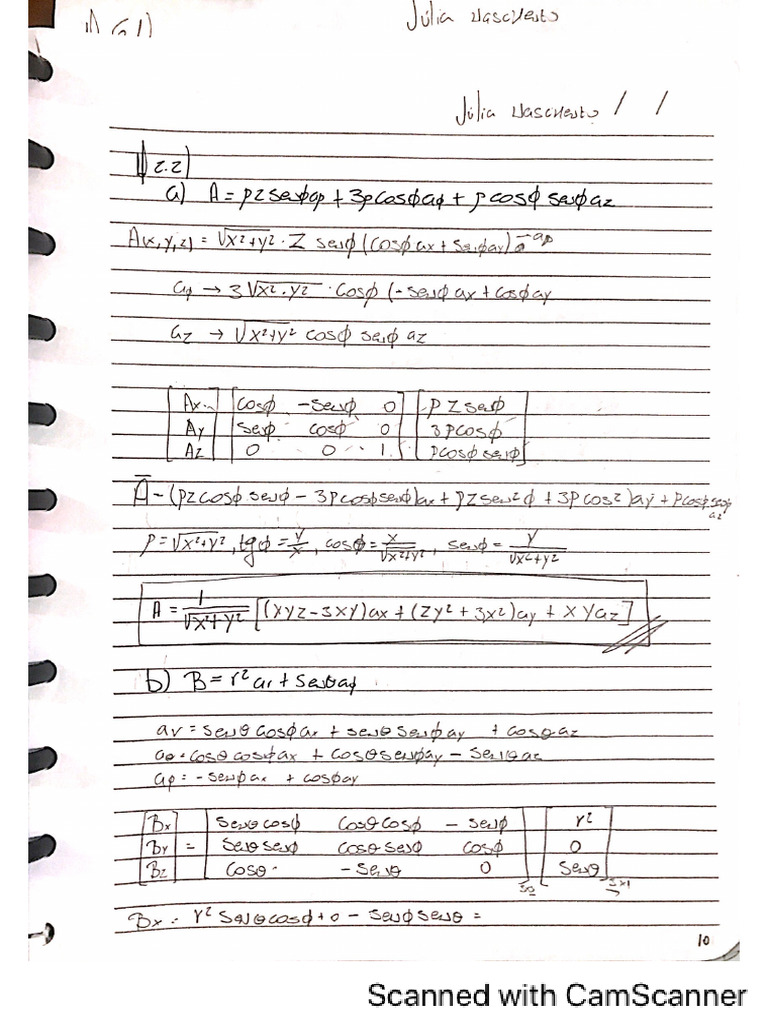 Júlia Nascimento
Júlia Nascimento / /
2.2)
a) A = ρz senφ aρ + 3ρ cosφ aφ + ρ cosφ senφ az
A(x,y,z) = √x²+y² · z senφ (cosφ ax + senφ ay) → aρ
aφ → 3√x²·y² · cosφ (-senφ ax + cosφ ay
az → √x²+y² cosφ senφ az
Ax cosφ -senφ 0 ρ z senφ
Ay senφ cosφ 0 3ρcosφ
Az 0 0 1 ρcosφ senφ
Ā - (ρz cosφ senφ - 3ρ cosφ senφ)ax + ρz sen²φ + 3ρ cos²)ay + ρcosφ senφ az
ρ = √x²+y², tgφ = y/x, cosφ = x/√x²+y², senφ = y/√x²+y²
A = 1/√x²+y² [(xyz - 3xy)ax + (zy² + 3x²)ay + xyaz]
b) B = r² ar + senθ aφ
ar = senθ cosφ ax + senθ senφ ay + cosθ az
aθ = cosθ cosφ ax + cosθ senφ ay - senθ az
aφ = -senφ ax + cosφ ay
Bx senθ cosφ cosθ cosφ - senφ r²
By = senθ senφ cosθ senφ cosφ 0
Bz cosθ -senθ 0 senθ
3x1
Bx = r² senθ cosφ + 0 - senφ senθ =
10
Scanned with CamScanner